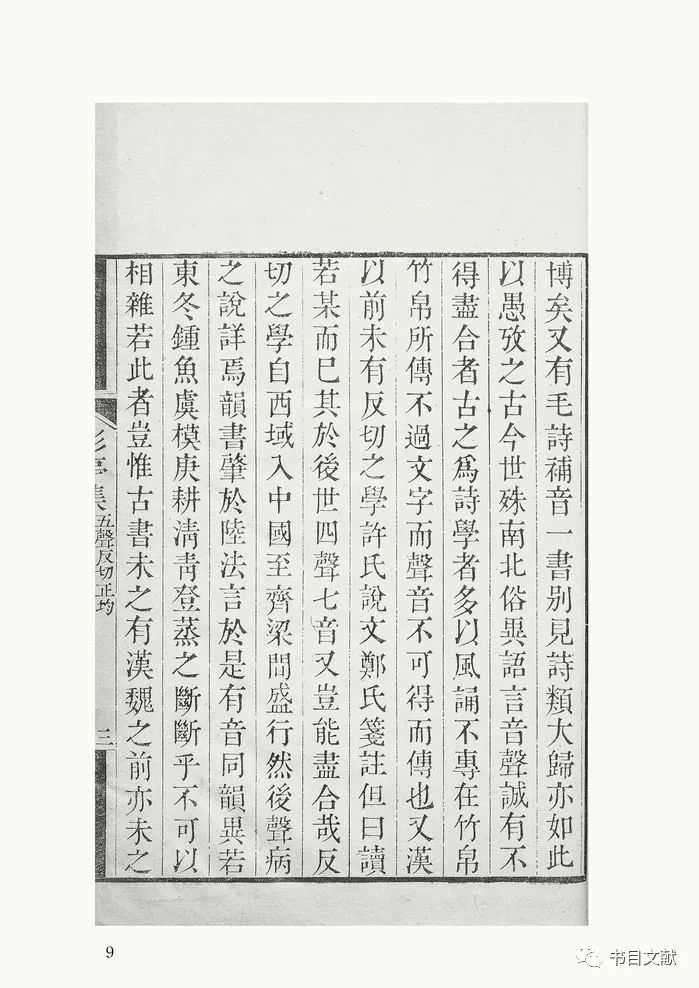 博矣又有毛詩補音一書別見詩類大歸亦如此
以愚攷之古今世殊南北俗異語言音聲誠有不
得盡合者古之爲詩學者多以風誦不專在竹帛
竹帛所傳不過文字而聲音不可得而傳也又漢
以前未有反切之學許氏說文鄭氏箋註但曰讀
若某而已其於後世四聲七音又豈能盡合哉反
切之學自西域入中國至齊梁間盛行然後聲病
之說詳焉韻書肇於陸法言於是有音同韻異若
東冬鍾魚虞模庚耕清青登蒸之斷斷乎不可以
相雜若此者豈惟古書未之有漢魏之前亦未之
亭集
五聲反切正均
三
9
书目文献